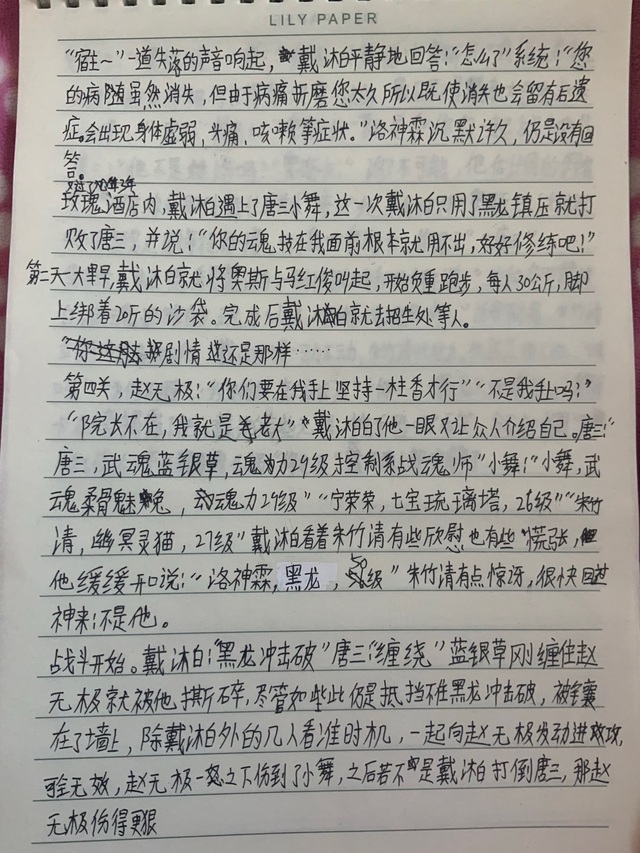 LILY PAPER
“宿主~”一道失落的声音响起，戴沐白平静地回答：“怎么了”系统：“您
的病随虽然消失，但由于病痛折磨您太久所以既使消失也会留有后遗
症。会出现身体虚弱，头痛、咳嗽等症状。”洛神霖沉默许久，仍是没有回
答。
玫瑰酒店内，戴沐白遇上了唐三小舞，这一次戴沐白只用了黑龙镇压就打
败了唐三，并说：“你的魂技在我面前根本就用不出，好好修练吧！”
第二天大早，戴沐白就将奥斯与马红俊叫起，开始负重跑步，每人30公斤，脚
上绑着20斤的沙袋。完成后戴沐白就去招生处等人。
剧情还是那样……
第四关，赵无极：“你们要在我手上坚持一柱香才行”“不是我上吗？”
“院长不在，我就是老大”戴沐白白了他一眼又让众人介绍自己。唐三：“
唐三，武魂蓝银草，魂力29级控制系战魂师”小舞：“小舞，武
魂柔骨魅兔，魂力29级”“宁荣荣，七宝琉璃塔，26级”“朱竹
清，幽冥灵猫，27级”戴沐白看着朱竹清有些欣慰也有些慌张，但
他缓缓开口说：“洛神霖，黑龙，级”朱竹清有点惊讶，很快回过
神来：不是他。
战斗开始。戴沐白：“黑龙冲击破”唐三：“缠绕”蓝银草刚缠住赵
无极就被他撕碎，尽管如此仍是抵挡不住黑龙冲击破，被镶
在了墙上，除戴沐白外的几人看准时机，一起向赵无极发动进攻，
可全无效，赵无极一怒之下伤到了小舞，之后若不是戴沐白打倒唐三，那赵
无极伤得更狠